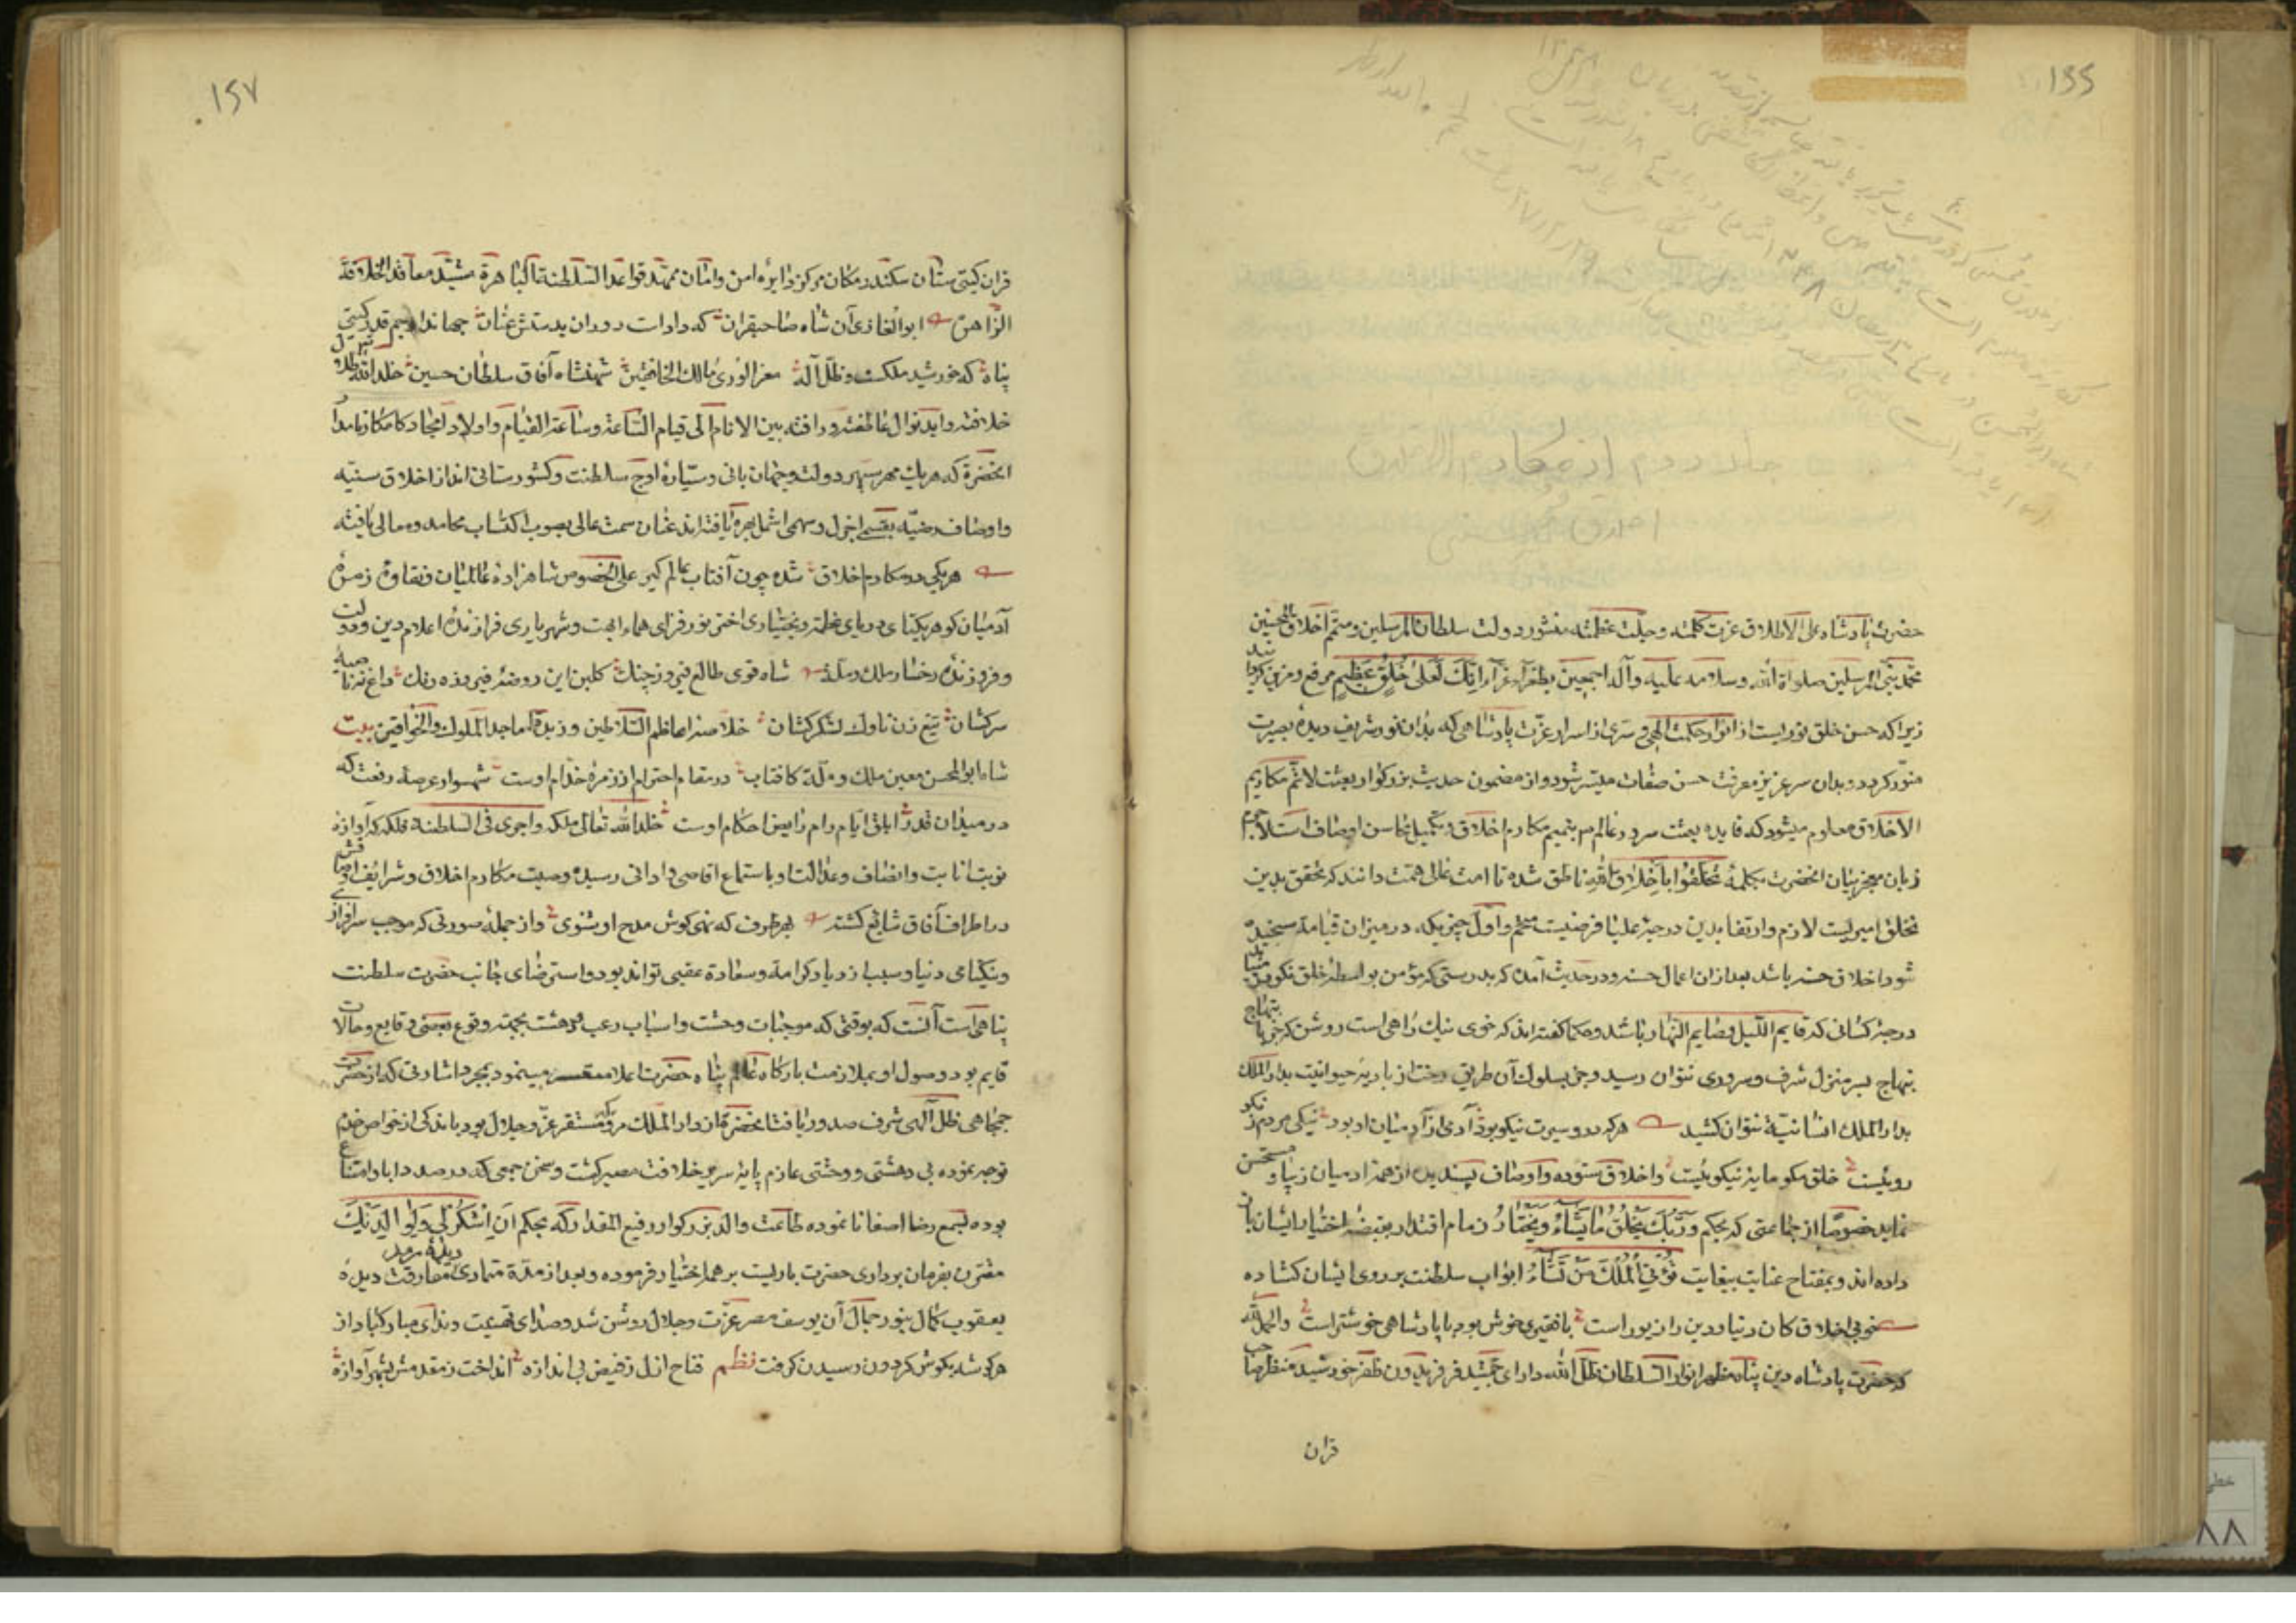 ۱۶۶
جلد دوم از مکارم الاخلاق
اخلاق محسنی
حضرت پادشاه علی الاطلاق عزت کلمته و جلت عظمته منشور دولت سلطان المرسلین و متمم اخلاق المحسنین
محمد نبی المرسلین صلواة الله و سلامه علیه و آله اجمعین بطغرای غرّاء انّک لَعَلی خُلُقٍ عَظیمٍ مرفع و مزین کردانید
زیرا که حسن خلق نوریست از انوار حکمت الهی و سری از اسرار عزّت پادشاهی که بدان نور شریف دیدهٔ بصیرت
منوّر کردد و بدان سر عزیز معرفت حسن صفات میسّر شود و از مضمون حدیث بزرکوار بعثت لاتمّم مکارم
الاخلاق معلوم میشود که فایده بعثت سرور عالم م بتمیم مکارم اخلاق و تکمیل محاسن اوصاف است لاجرم
زبان معجز بیان انحضرت بکلمهٔ تَخَلَّقُوا بِاَخْلاقِ اللّهِ ناطق شده تا امت عالی همّت دانند که تحقق بدین
تخلق امریست لازم و ارتقا بدین درجهٔ علیا فرضیست متحتم و اوّل چیزیکه در میزان قیامة سنجیده
شود اخلاق حسنه باشد بعد ازان اعمال حسنه و در حدیث آمده که بدرستی که مؤمن بواسطهٔ خلق نکو می‌یابد
درجهٔ کسانی که قایم اللّیل و صایم النّهار باشند و حکما کفته‌اند که خوی نیک راهی است روشن که جز بابتهاج
بنهاج بسر منزل شرف و سروری نتوان رسید و جز بسلوک آن طریق رخت از بادیهٔ حیوانیت بدار الملک
بدار الملک انسانیّة نتوان کشید هر که درو سیرت نیکو بود آدمی از آدمیان او بود نیکی مردم نه نکو
رویئیست خلق نکو مایهٔ نیکوییست و اخلاق ستوده و اوصاف پسندیده از همه آدمیان زیبا و مستحسن
نماید خصوصاً از جماعتی که بحکم وَ رَبُّکَ یَخْلُقُ مٰا یَشٰاءُ وَ یَخْتٰارُ زمام اقتدار بقبضهٔ اختیار ایشان باز
داده‌اند و بمفتاح عنایت بیغایت تُؤْتِی الْمُلْکَ مَنْ تَشٰاءُ ابواب سلطنت بر روی ایشان کشاده
خوبی اخلاق کان دنیا و دین را زیور است با فقیری خوش بود با پادشاهی خوشتر است والحمدلله
که حضرت پادشاه دین پناه مظهر انوار السلطان ظلّ الله دارای جمشید فر فریدون ظفر خورشید منظر صاحب
قران
۱۶۷
قران کیتی ستان سکندر مکان مرکز دایرهٔ امن و امان ممهّد قواعد السّلطنة الباهرة مشیّد معاقد الخلافة
الزّاهرة ابوالغازی آن شاه صاحبقران که دارات دوران بدستش عنان جهاندار جم قدر کیتی
پناه که خورشید ملکست و ظلّ اله معز الوری مالک الخافقین شهنشاه آفاق سلطان حسین خلد الله ظلال
خلافته و اید نوال عاطفته و رافته بین الانام الی قیام السّاعة و ساعة القیام و اولاد امجاد کامکار نامدار
انحضرة که هریک مهر سپهر دولت و جهان بانی و سیّارهٔ اوج سلطنت و کشورستانی اند از اخلاق سنیّه
و اوصاف رضیّه بقسم اجزل و سهم اشمل بهره یافته‌اند عنان سمت عالی بصوب اکتساب محامد و معالی یافته
هریکی در مکارم اخلاق شده چون آفتاب عالم کیر علی الخصوص شاهزادهٔ عالمیان و نقاوهٔ زمرهٔ
آدمیان کوهر یکتای دریای عظمت و بختیاری اختر نور فزای سماء ابهت و شهریاری فرازندهٔ اعلام دین و دولت
و فروزندهٔ رخسار ملک و ملّة شاه قوی طالع فیروز چنک کلبن این روضهٔ فیروزه رنک داغ نه ناصیهٔ
سرکشان تیغ زن تاوک لشکر کشان خلاصهٔ اعاظم السّلاطین و زبدة اماجد الملوک و الخواقین بیت
شاه ابوالمحسن معین ملک و ملّة کافتاب در مقام احترام از زمرهٔ خدّام اوست شهسوار عرصهٔ رفعت که
در میدان قدر ابلق ایّام رام رایض احکام اوست خلد الله تعالی ملکه و اجری فی السلطنة فلکه که آوازه
نوبت انابت و انصاف و عدالت او باستماع اقاصی و ادانی رسیده و صیت مکارم اخلاق و شرایف اوصافش
در اطراف آفاق شایع کشته بهر طرف که نهی کوش مدح او شنوی و از جمله صورتی که موجب سرافرازی
و نیکنامی دنیا و سبب ازدیاد کرامة و سعادة عقبی تواند بود و استرضای جانب حضرت سلطنت
پناهی است آنست که بوقتی که موجبات وحشت و اسباب رعب و دهشت بجهت وقوع بعضی وقایع و حالات
قایم بود و وصول او بملازمت بارکاه عالم پناه حضرت اعلا مینمود بمجرد اشارتی که از حضرت
جمجاهی ظلّ آلهی شرف صدور یافت انحضرة از دار الملک مرو که مستقر عزّ و جلال بود باندکی از خواص خدم
توجه نموده بی دهشتی و وحشتی عازم پایهٔ سریر خلافت مصیر کشت و سخن جمعی که در صدد ابا و امتناع
بوده بسمع رضا اصغا نا نموده طاعت والد بزرکوار رفیع المقدار که بحکم اَنِ اشْکُرْ لی وَ لِوٰالِدَیْکَ
مقترن بفرمان برداری حضرت باریست بر همه اختیار فرموده و بعد از مدّة متمادی مفارقت دیدهٔ
یعقوب کمال بنور جمال آن یوسف مصر عزّت و جلال روشن شد و صدای تهنیت و ندای مبارکباد از
هر کوشه بکوش کردون رسیدن کرفت نظم فتاح ازل ز فیض بی اندازه انداخت ز مقدمش بشهر آوازهٔ